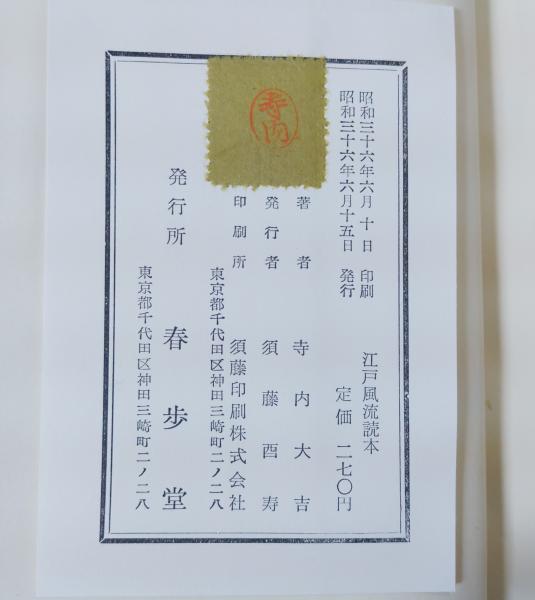 昭和三十六年六月十日 印刷
昭和三十六年六月十五日 発行
江戸風流読本
定価 二七〇円
著者 寺内大吉
発行者 須藤酉寿
印刷所 須藤印刷株式会社
東京都千代田区神田三崎町二ノ二八
発行所 春歩堂
東京都千代田区神田三崎町二ノ二八
寺内